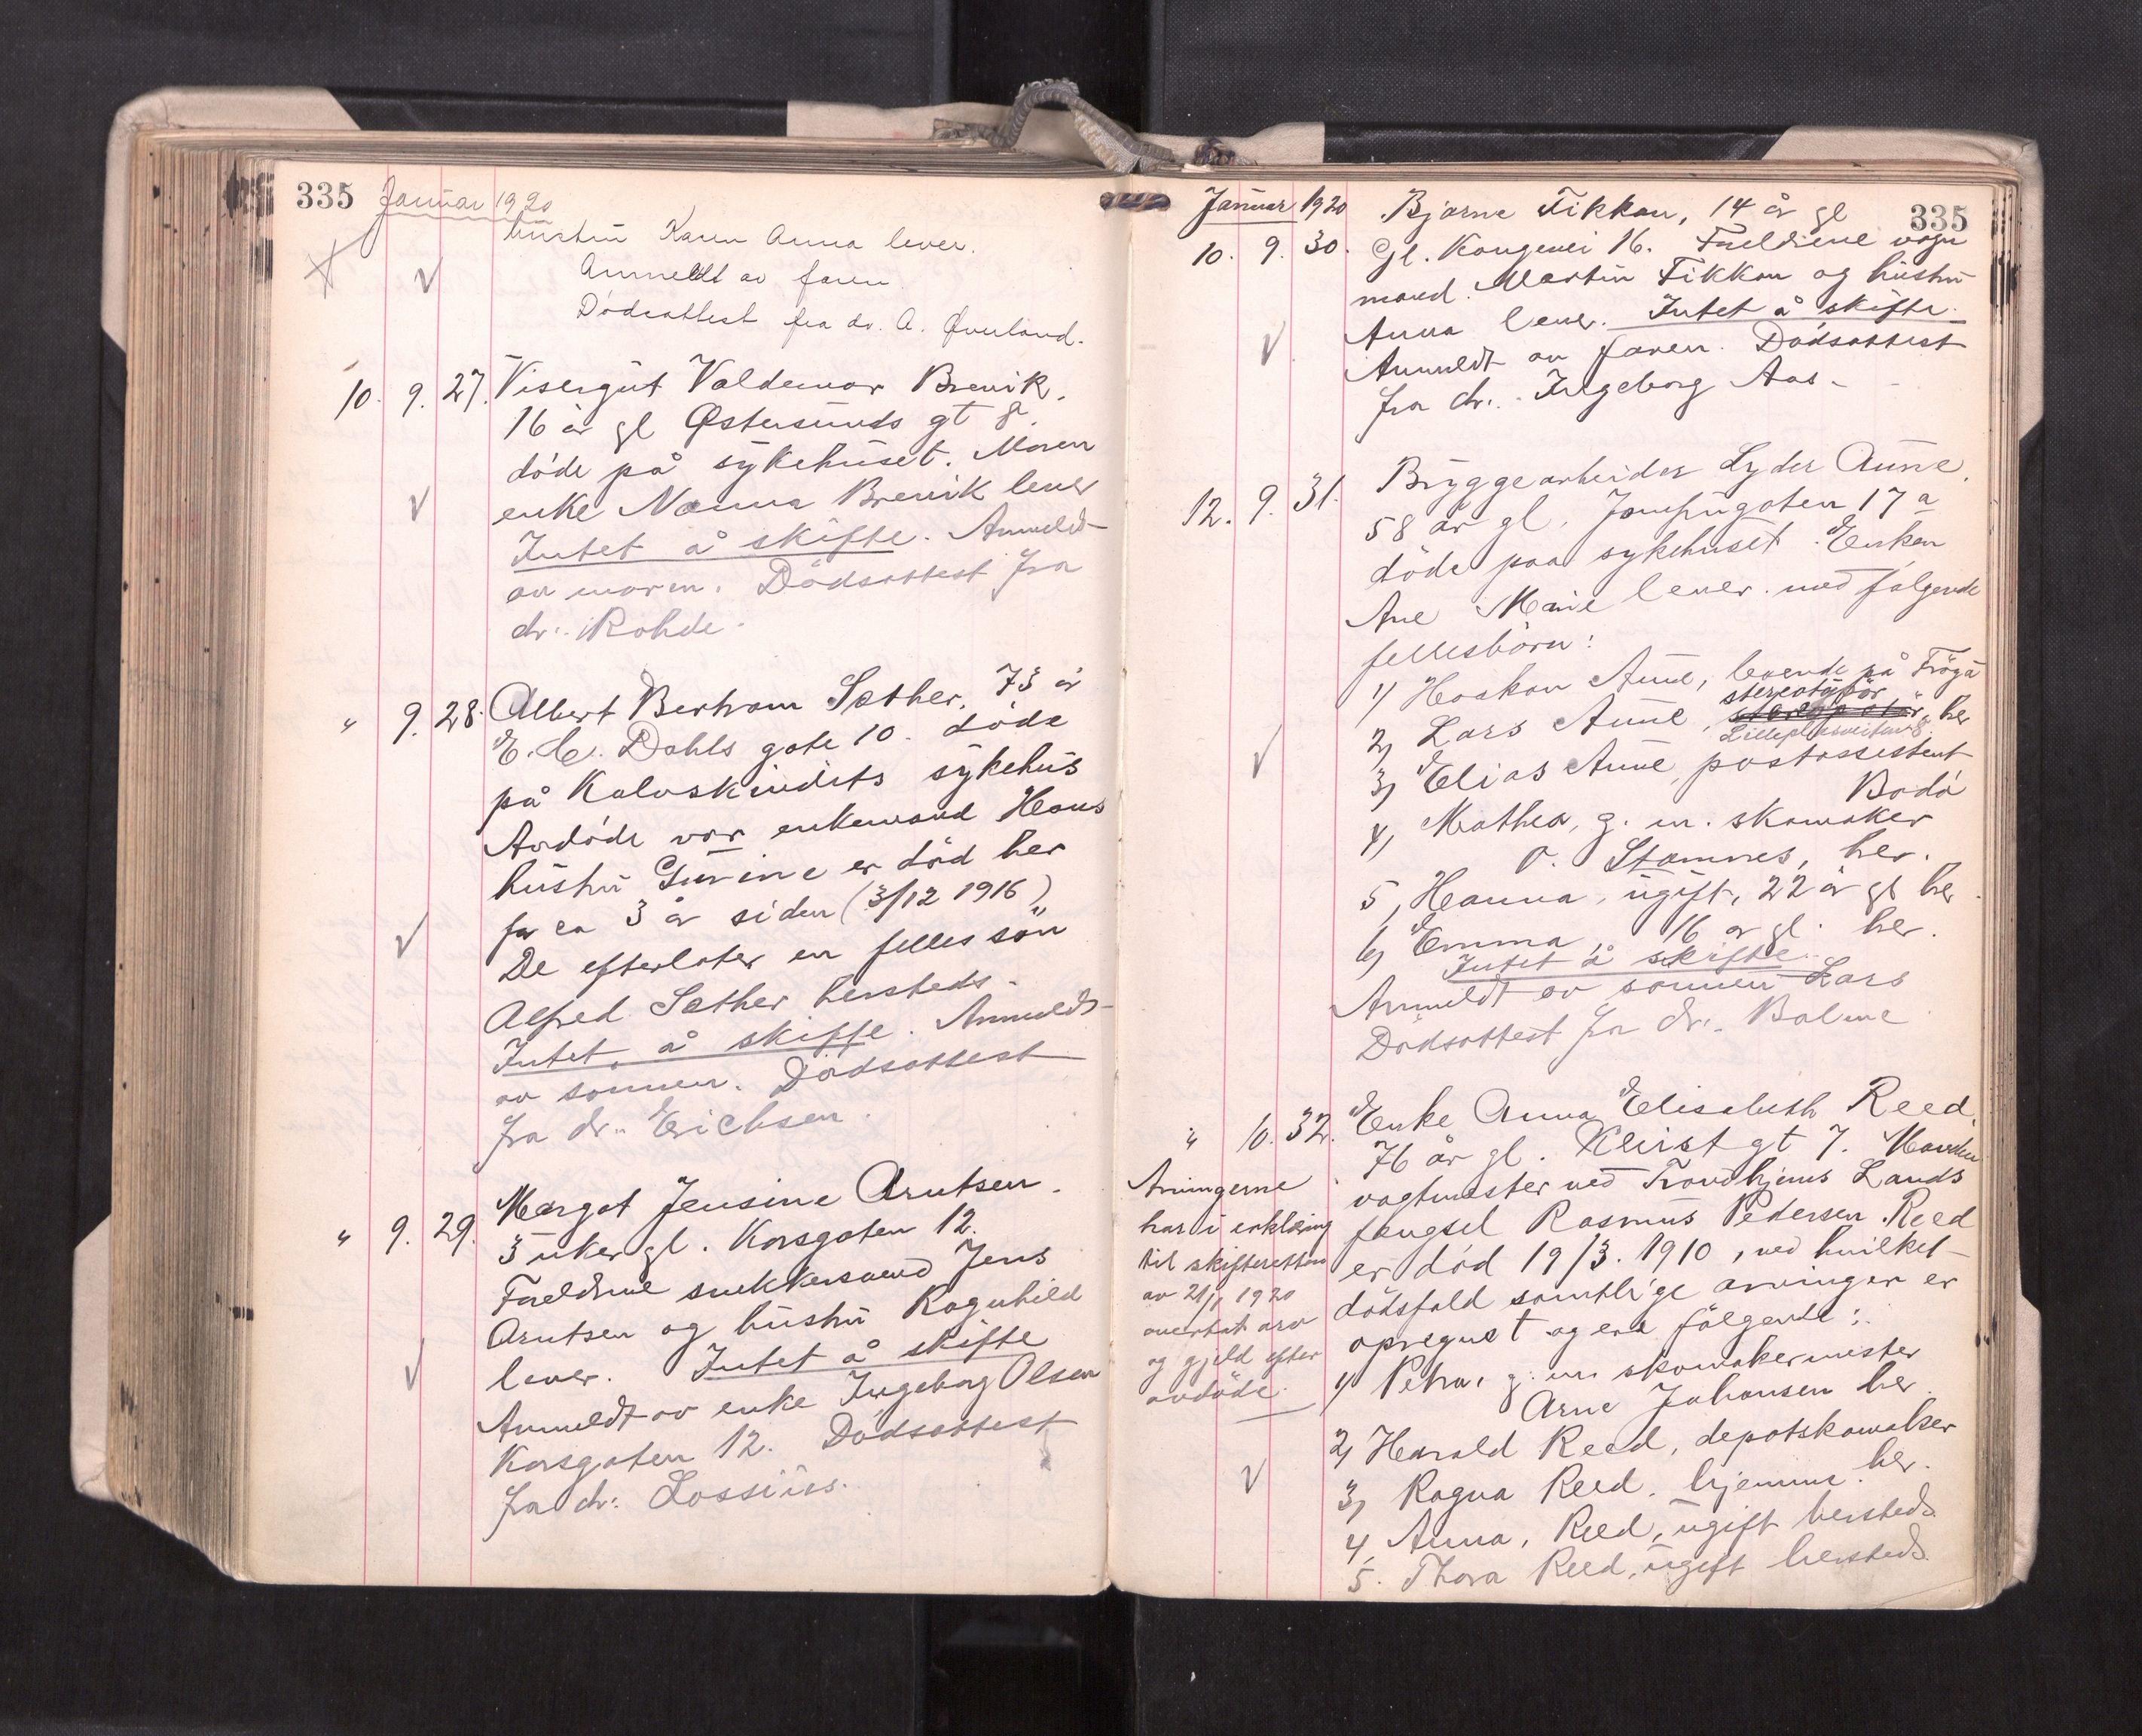 335 Januar 1920
hustru Karen Anna lever.
Anmeldt av faren
Dödsattest fra dr. A. Øverland.
10. 9. 27. Visergut Valdemar Brevik.
16 år gl Østersunds gt 8.
döde på sykehuset. Moren
enke Nanna Brevik lever
Intet å skifte. Anmeldt
av moren. Dödsattest fra
dr. Rohde.
" 9. 28. Albert Bertram Sæther, 73 år
E. C. Dahls gate 10. döde
på Kalvskindets sykehus
Avdöde var enkemand Hans
hustru Gurine er död her
for ca 3 år siden (3/12 1916)
De efterlater en felles sön
Alfred Sæther hersteds.
Intet å skifte. Anmeldt
av sönnen. Dödsattest
fra dr. Erichsen.
" 9. 29. Margot Jensine Arntsen.
3 uker gl. Korsgaten 12.
Foreldrene snekkersvend Jens
Arntsen og hustru Ragnhild
lever. Intet å skifte
Anmeldt av enke Ingeborg Olsen
Korsgaten 12. Dödsattest
fra dr. Lossius.
Januar 1920 Bjarne Fikkan, 14 år gl 335
10. 9. 30. Gl. Kongevei 16. Foreldrene vogn
mand Martin Fikkan og hustru
Anna lever. Intet å skifte.
Anmeldt av faren. Dödsattest
fra dr. Ingeborg Aas.
12. 9. 31. Bryggearbeider Lyder Aune.
58 år gl. Jomfrugaten 17 a
döde paa sykehuset. Enken
Ane Marie lever med følgende
fellesbörn:
1) Haakon Aune, boende på Fröya
2) Lars Aune, stereotypör, her
3) Elias Aune, postassistent
Bodö
4) Mathea, g. m. skomaker
O. Stamnes, her.
5, Hanna, ugift, 22 år gl her
6) Emma, 16 år gl. her.
Intet å skifte.
Anmeldt av sönnen Lars
Dödsattest fra dr. Balme
" 10. 32. Enke Anna Elisabeth Reed,
76 år gl. Klinst gt 7. Manden
vagtmester ved Trondhjems Lands
fængsel Rasmus Pedersen Reed
er död 19/3. 1910, ved hvilket
dödsfald samtlige arvinger er
opregnet og er følgende:
1) Petra, g. m. skomakermester
Arne Johansen her
2) Harald Reed, depotskomaker
her.
3) Ragna Reed. hjemme
4, Anna, Reed, ugift hersteds
5. Thora Reed, ugift hersteds.
Arvingerne
har i erklæring
til skifteretten
av 21/1 1920
overtat arv
og gjeld efter
avdöde.